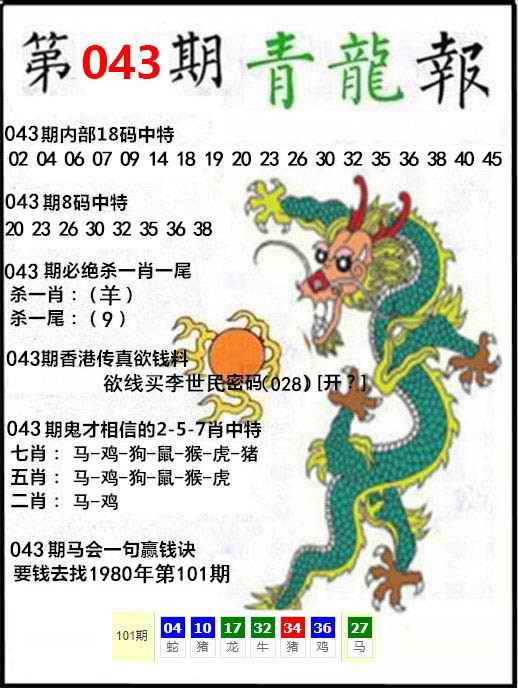 第043期青龍報
043期内部18码中特
02 04 06 07 09 14 18 19 20 23 26 30 32 35 36 38 40 45
043期8码中特
20 23 26 30 32 35 36 38
043 期必绝杀一肖一尾
杀一肖：（羊）
杀一尾：（9）
043期香港传真欲钱料
欲线买李世民密码(028) [开？]
043期鬼才相信的2-5-7肖中特
七肖： 马-鸡-狗-鼠-猴-虎-猪
五肖： 马-鸡-狗-鼠-猴-虎
二肖： 马-鸡
043期马会一句赢钱诀
要钱去找1980年第101期
101期 04 10 17 32 34 36 27
蛇 猪 龙 牛 猪 鸡 马